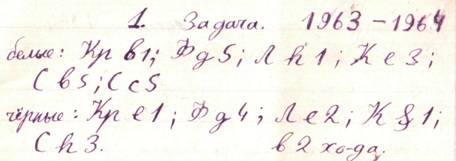 1. Задача. 1963-1964
белые: Кр b1; Ф g5; Л h1; К e3;
С b5; С c5
чёрные: Кр e1; Ф g4; Л e2; К f1;
С h3. в 2 хо-да.